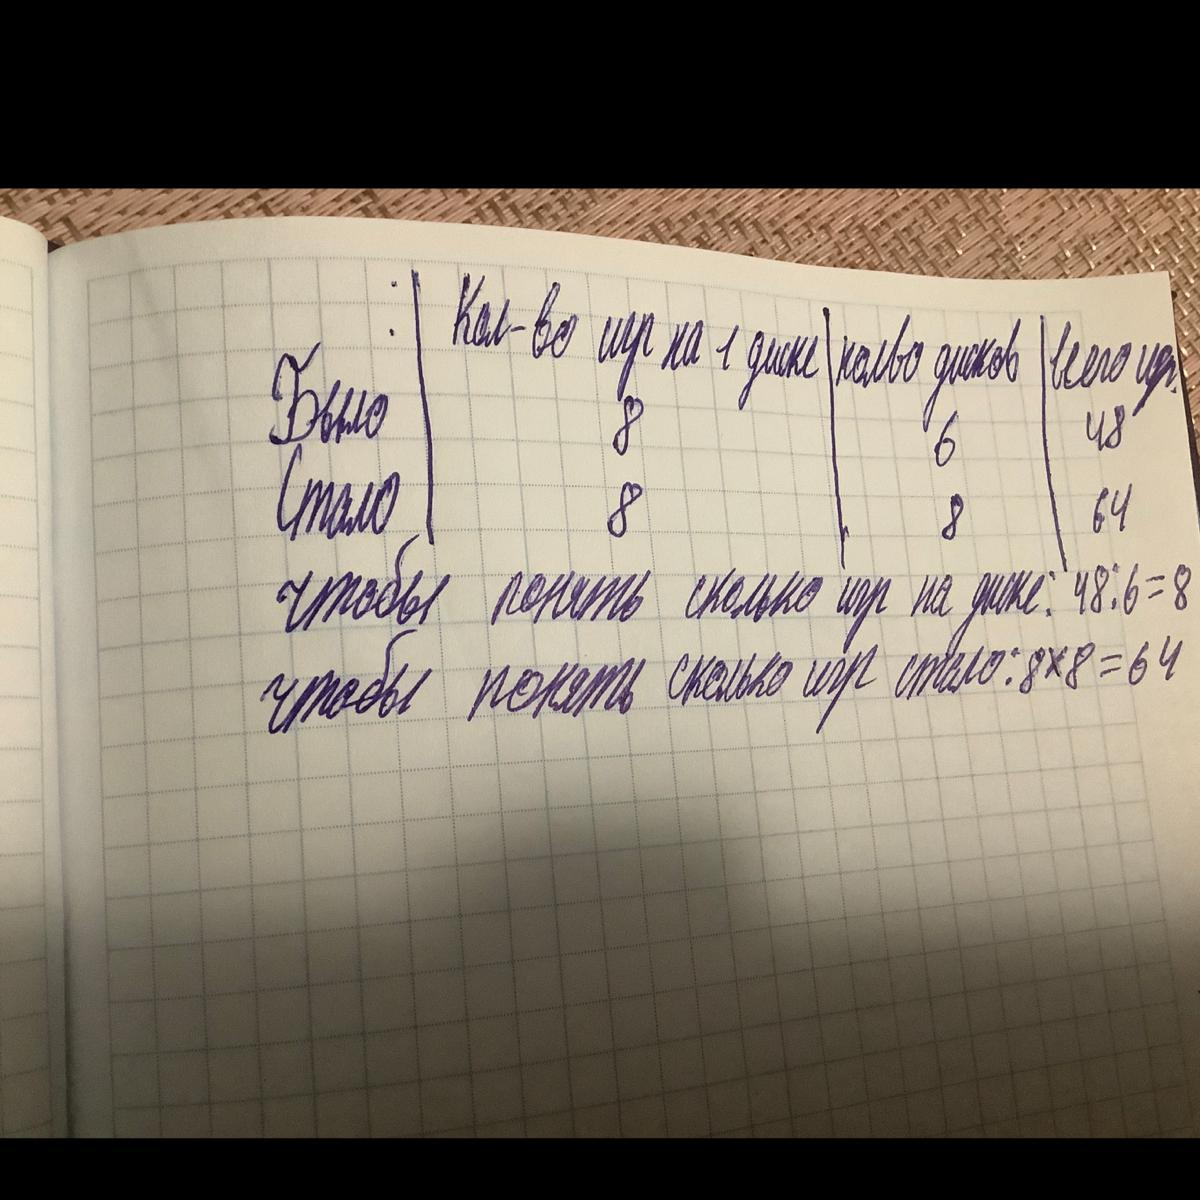 : Кол-во игр на 1 диске кол-во дисков всего игр.
Было 8 6 48
Стало 8 8 64
чтобы понять сколько игр на диске: 48:6=8
чтобы понять сколько игр стало: 8×8=64